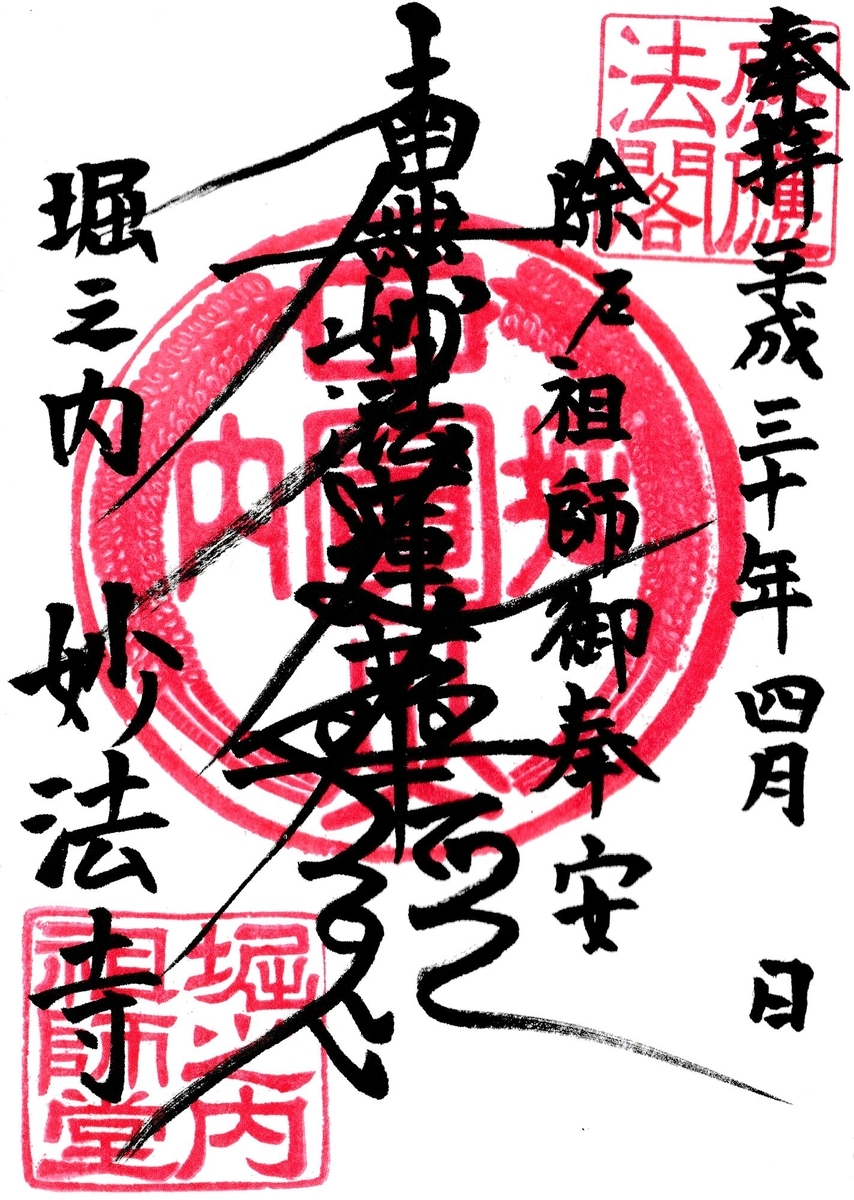 奉拝 平成三十年四月 日
除厄祖師御奉安
南無妙法蓮華経
堀之内 妙法寺
法閣
堀之内
祖師堂